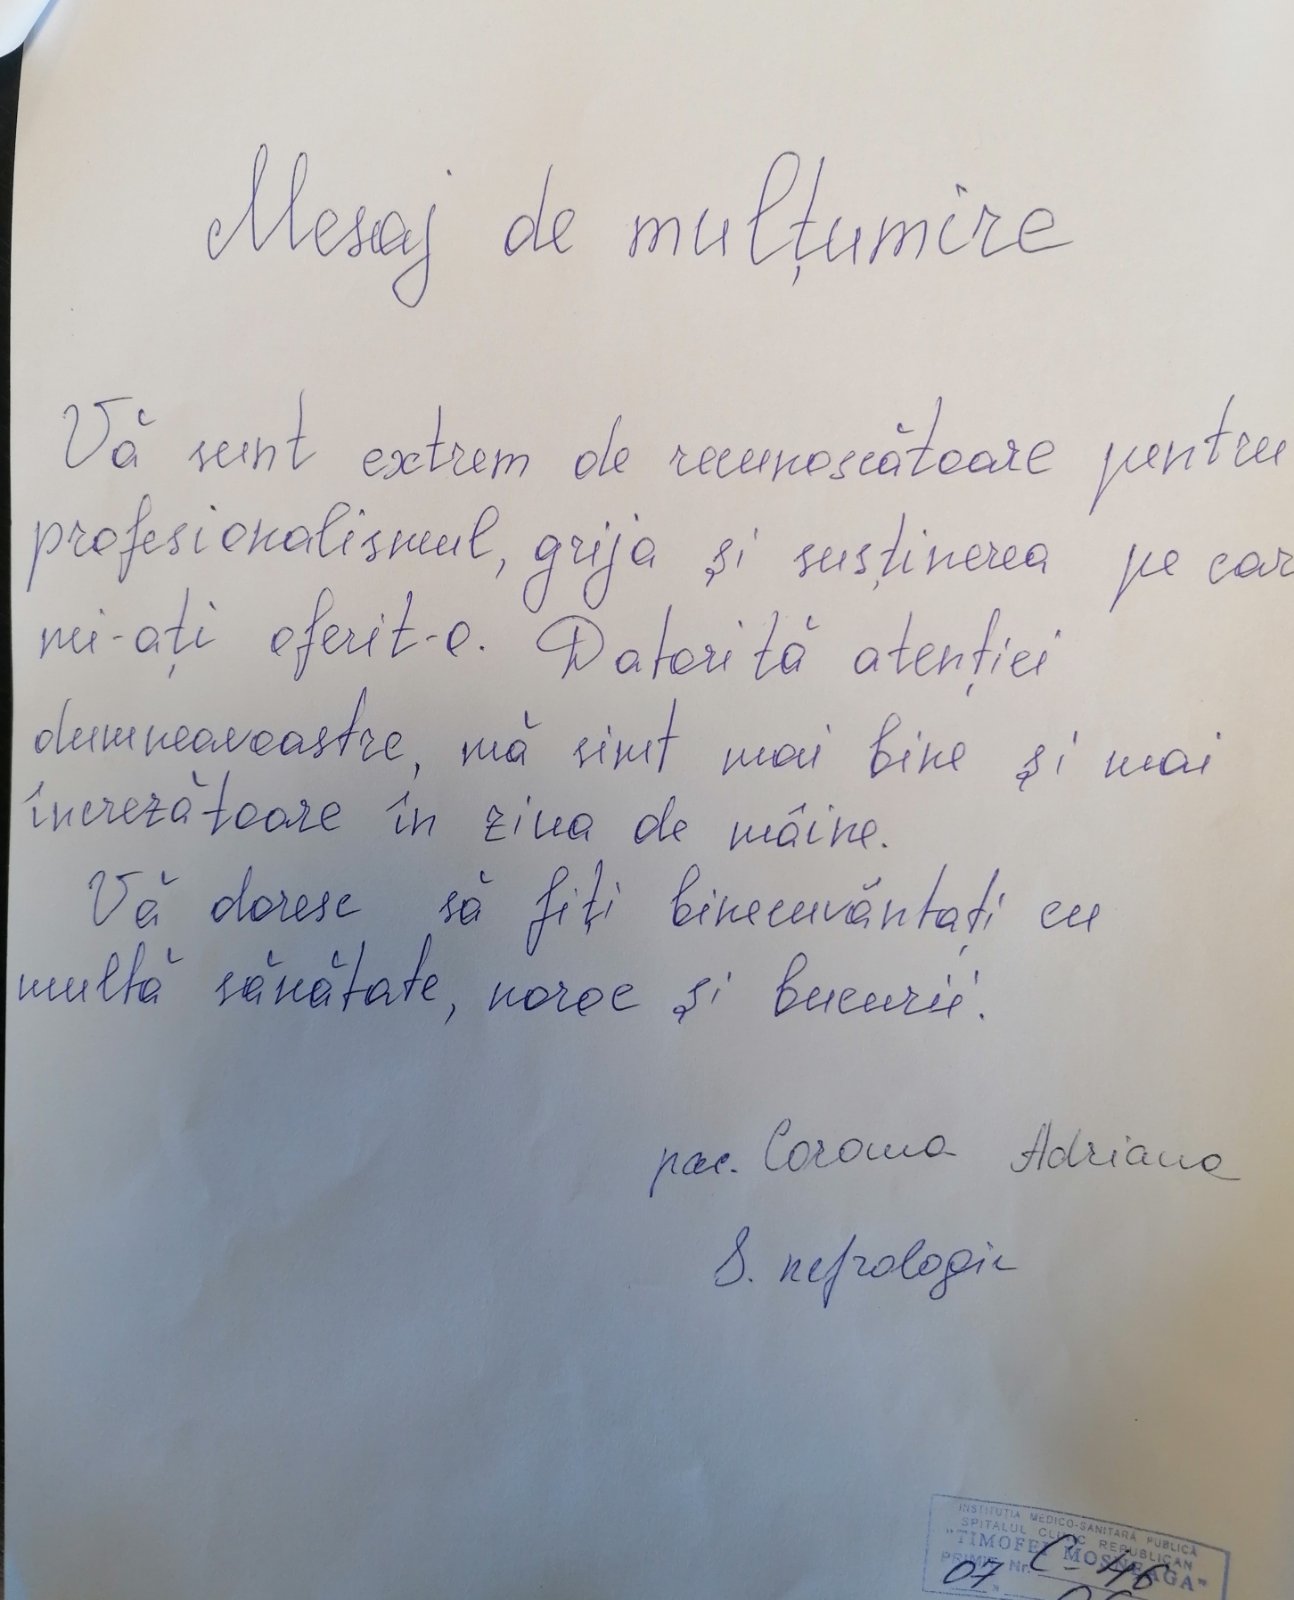 Mesaj de mulțumire
Vă sunt extrem de recunoscătoare pentru
profesionalismul, grija și susținerea pe car
mi-ați oferit-o. Datorită atenției
dumneavoastre, mă simt mai bine și mai
încrezătoare în ziua de mâine.
Vă doresc să fiți binecuvântați cu
multă sănătate, noroc și bucurii.
pac. Adriana
S. nefrologie
INSTITUȚIA MEDICO-SANITARĂ PUBLICĂ
SPITALUL CLINIC REPUBLICAN
"TIMOFEI MOȘNEAGA"
PRIMIT Nr. C-46
07